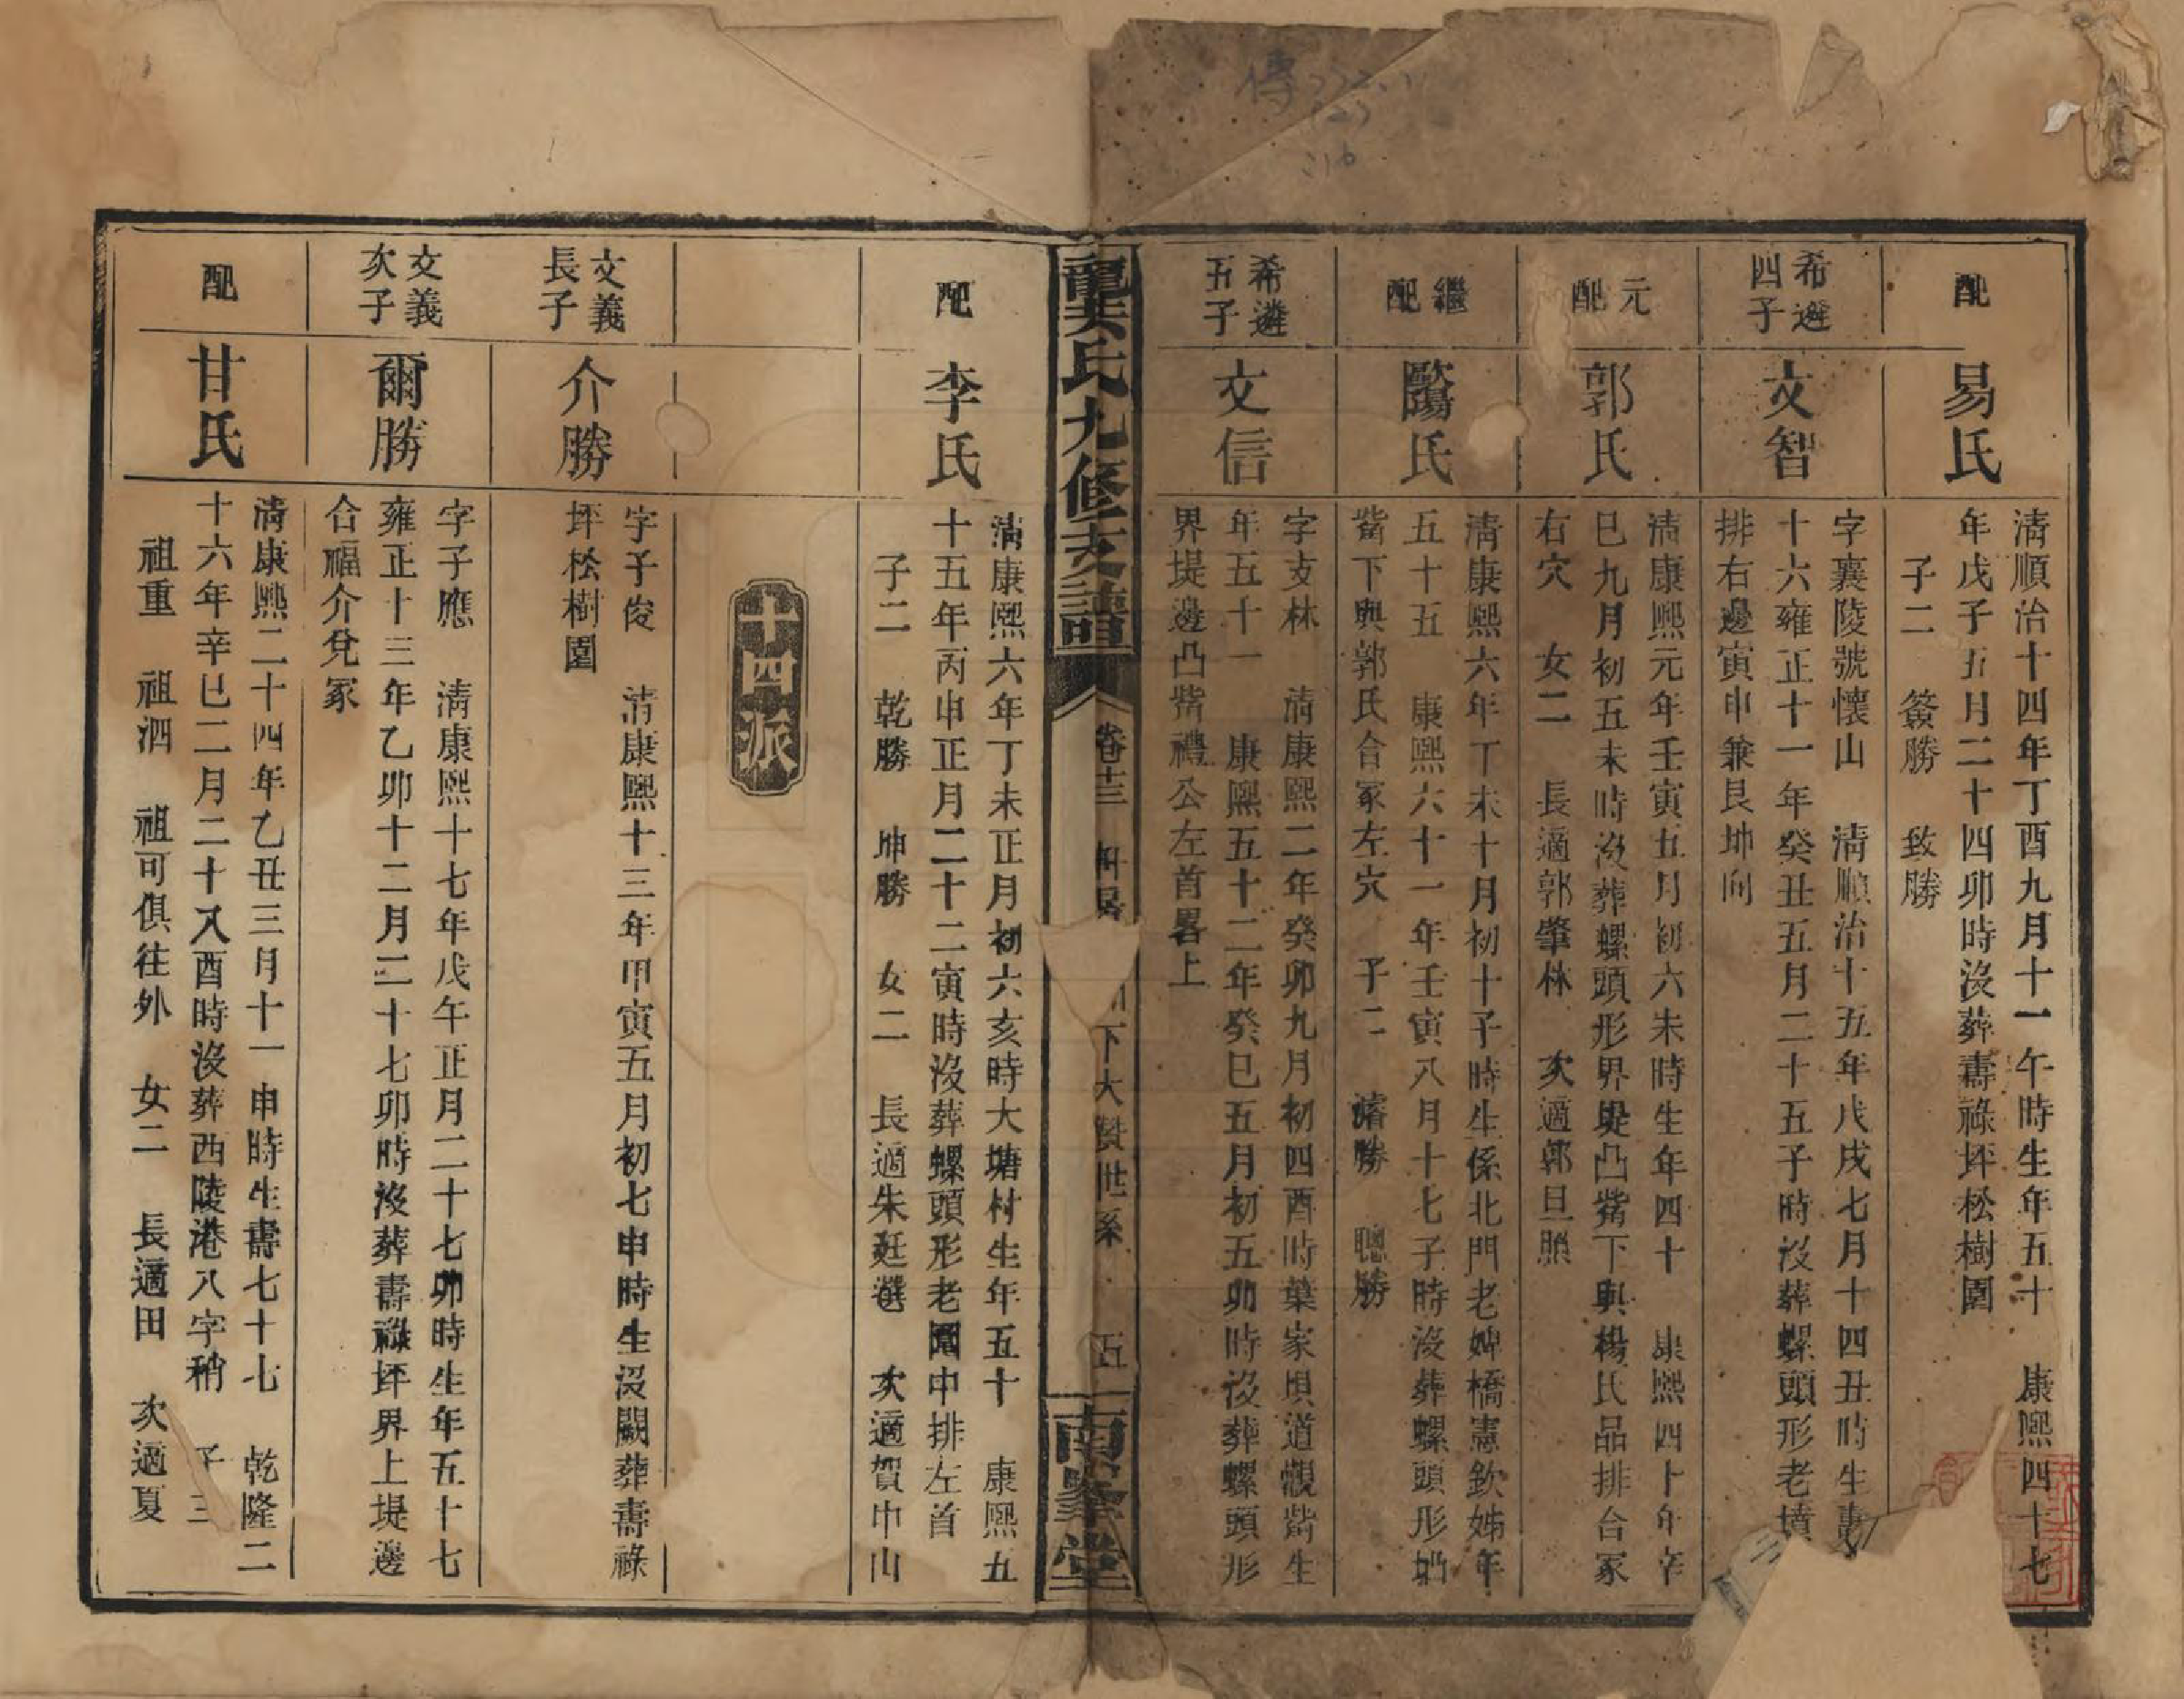 傳
(2)
配
易氏
清順治十四年丁酉九月十一午時生年五十　康熙四十七
年戊子五月二十四卯時沒葬壽祿坪松樹園
子二　簽勝　致勝
希遴
四子
文智
字襄陵號懷山　清順治十五年戊戌七月十四丑時生壽
十六雍正十一年癸丑五月二十五子時沒葬螺頭形老墳
排右邊寅申兼艮坤向
元
配
郭氏
清康熙元年壬寅五月初六未時生年四十　康熙四十年辛
巳九月初五未時沒葬螺頭形界堤凸觜下與楊氏品排合冢
右穴　女二　長適郭肇林　次適郭旦照
繼
配
歐陽氏
清康熙六年丁未十月初十子時生係北門老婢橋憲欽姊年
五十五　康熙六十一年壬寅八月十七子時沒葬螺頭形凸
觜下與郭氏合冢左穴　子二　濬勝　聰勝
希遴
五子
文信
字支林　清康熙二年癸卯九月初四酉時葉家垻道觀觜生
年五十一　康熙五十二年癸巳五月初五卯時沒葬螺頭形
界堤邊凸觜禮公左首畧上
龔氏九修支譜
卷十三
下大贊世系
五
南峯堂
配
李氏
清康熙六年丁未正月初六亥時大塘村生年五十　康熙五
十五年丙申正月二十二寅時沒葬螺頭形老園中排左首
子二　乾勝　坤勝　女二　長適朱廷選　次適賀中山
十四派
文義
長子
介勝
字子俊　清康熙十三年甲寅五月初七申時生沒闕葬壽祿
坪松樹園
文義
次子
爾勝
字子應　清康熙十七年戊午正月二十七卯時生年五十七
雍正十三年乙卯十二月二十七卯時沒葬壽祿坪界上堤邊
合福介兌冢
配
甘氏
清康熙二十四年乙丑三月十一申時生壽七十七　乾隆二
十六年辛巳二月二十八酉時沒葬西陵港八字稍　子三
祖重　祖泗　祖可俱往外　女二　長適田　次適夏